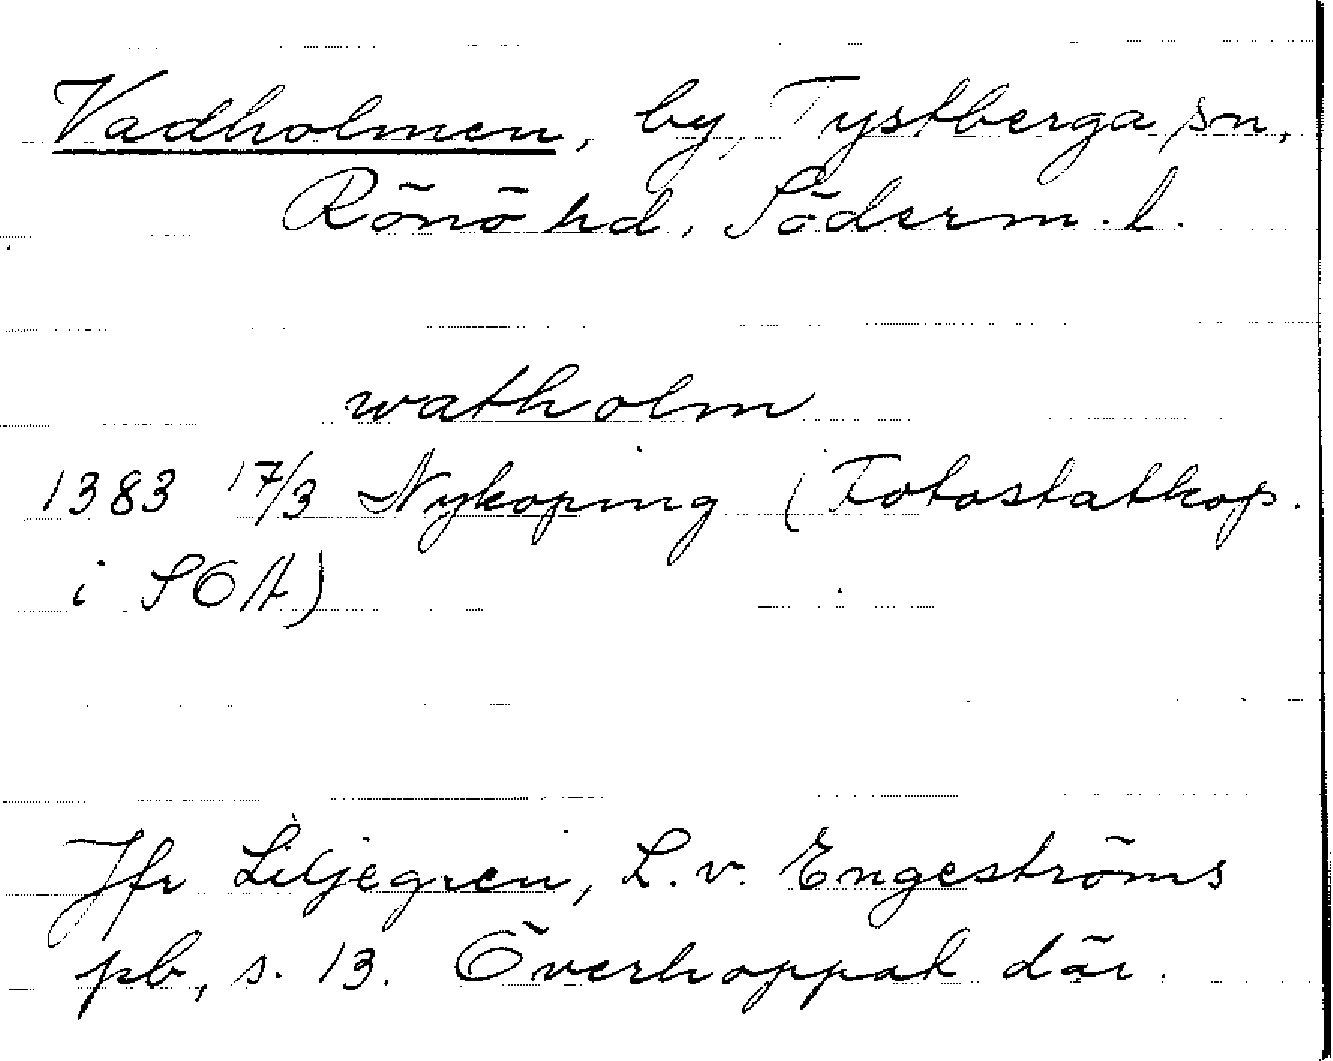 Vadholmen, by, Tystberga sn,
Rönö hd, Söderm. l.
watholm
1383 17/3 Nykøping (Fotostatkop.
i SOA)
Jfr Liljegren, L. v. Engeströms
pb, s. 13. Överhoppat där.